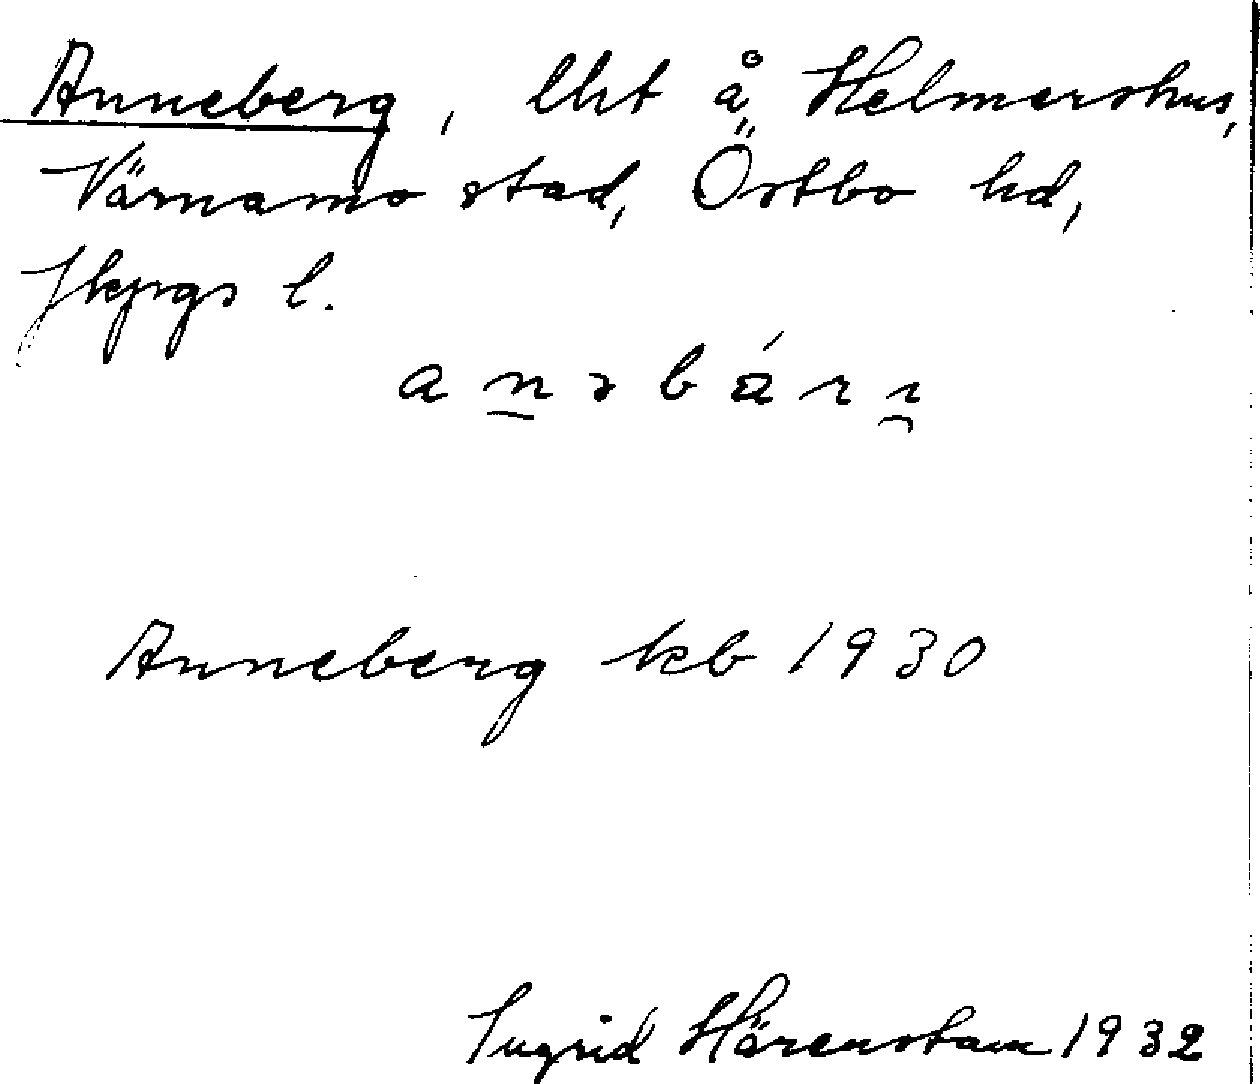 Anneberg, lht å Helmershus,
Värnamo stad, Östbo hd,
Jkpgs l.
Anneberg kb 1930
Ingrid Härenstam 1932